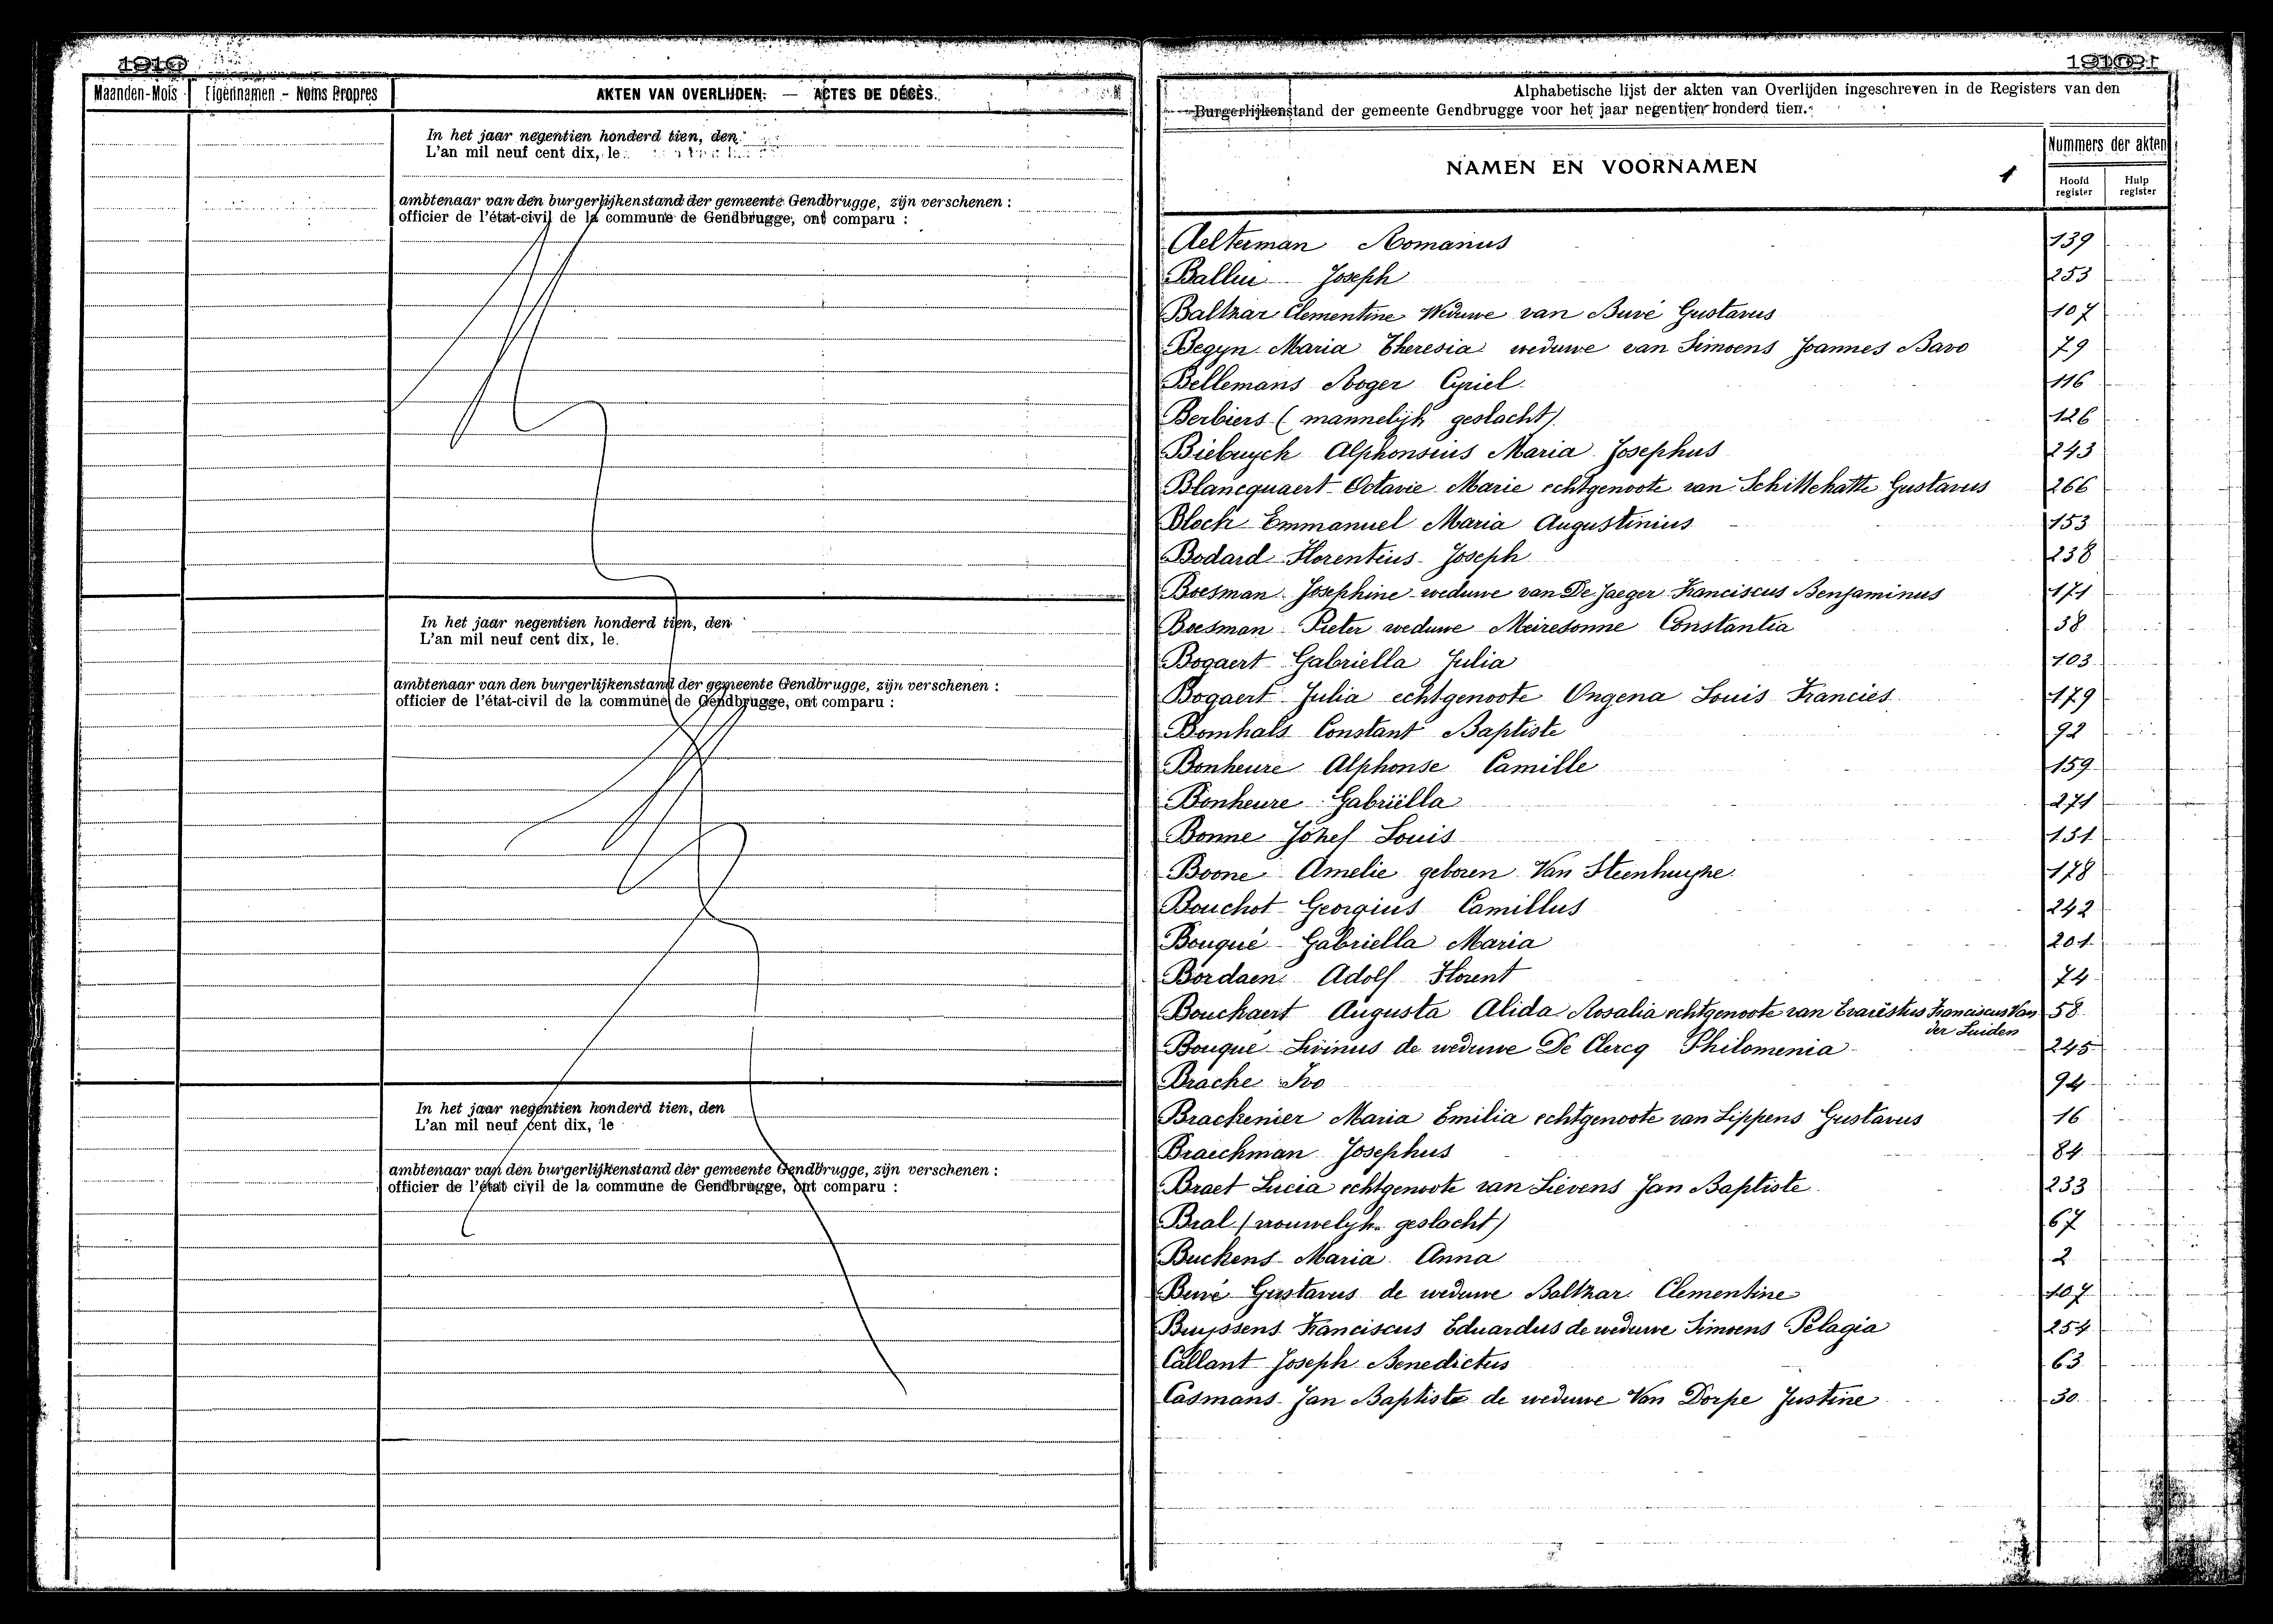 1910
Maanden-Mois Eigennamen - Noms Propres AKTEN VAN OVERLIJDEN. — ACTES DE DÉCÈS.
In het jaar negentien honderd tien, den
L'an mil neuf cent dix, le
ambtenaar van den burgerlijkenstand der gemeente Gendbrugge, zijn verschenen :
officier de l'état-civil de la commune de Gendbrugge, ont comparu :
In het jaar negentien honderd tien, den
L'an mil neuf cent dix, le
ambtenaar van den burgerlijkenstand der gemeente Gendbrugge, zijn verschenen :
officier de l'état-civil de la commune de Gendbrugge, ont comparu :
In het jaar negentien honderd tien, den
L'an mil neuf cent dix, le
ambtenaar van den burgerlijkenstand der gemeente Gendbrugge, zijn verschenen :
officier de l'état civil de la commune de Gendbrugge, ont comparu :
Alphabetische lijst der akten van Overlijden ingeschreven in de Registers van den
Burgerlijkenstand der gemeente Gendbrugge voor het jaar negentien honderd tien.
NAMEN EN VOORNAMEN 1
Nummers der akten
Hoofd register Hulp register
Aelterman Romanus 139
Ballin Joseph 253
Baltzar Clementine Weduwe van Buvé Gustavus 107
Begyn Maria Theresia weduwe van Simoens Joannes Bavo 79
Bellemans Roger Cyriel 116
Berbiers (mannelijk geslacht) 126
Biebuyck Alphonsius Maria Josephus 243
Blancquaert Octavie Marie echtgenoote van Schittekatte Gustavus 266
Block Emmanuel Maria Augustinius 153
Bodard Florentius Joseph 238
Boesman Josephine weduwe van De Jaeger Franciscus Benjaminus 171
Boesman Pieter weduwe Meiresonne Constantia 38
Bogaert Gabriella Julia 103
Bogaert Julia echtgenoote Ongena Louis Francies 179
Bomhals Constant Baptiste 92
Bonheure Alphonse Camille 159
Bonheure Gabriëlla 271
Bonne Jozef Louis 131
Boone Amelie geboren Van Steenhuyze 178
Bouchot Georgius Camillus 242
Bouqué Gabriella Maria 201
Bordaen Adolf Florent 74
Bouckaert Augusta Alida Rosalia echtgenoote van Evaristus Franciscus Van 58
der Luiden
Bouqué Livinus de weduwe De Clercq Philomenia 245
Brache Ivo 94
Brackenier Maria Emilia echtgenoote van Lippens Gustavus 16
Braeckman Josephus 84
Braet Lucia echtgenoote van Lievens Jan Baptiste 233
Bral (vrouwelyk geslacht) 67
Buckens Maria Anna 2
Buvé Gustavus de weduwe Baltzar Clementine 107
Buyssens Franciscus Eduardus de weduwe Simoens Pelagia 254
Callant Joseph Benedictus 63
Casmans Jan Baptiste de weduwe Van Dorpe Justine 30